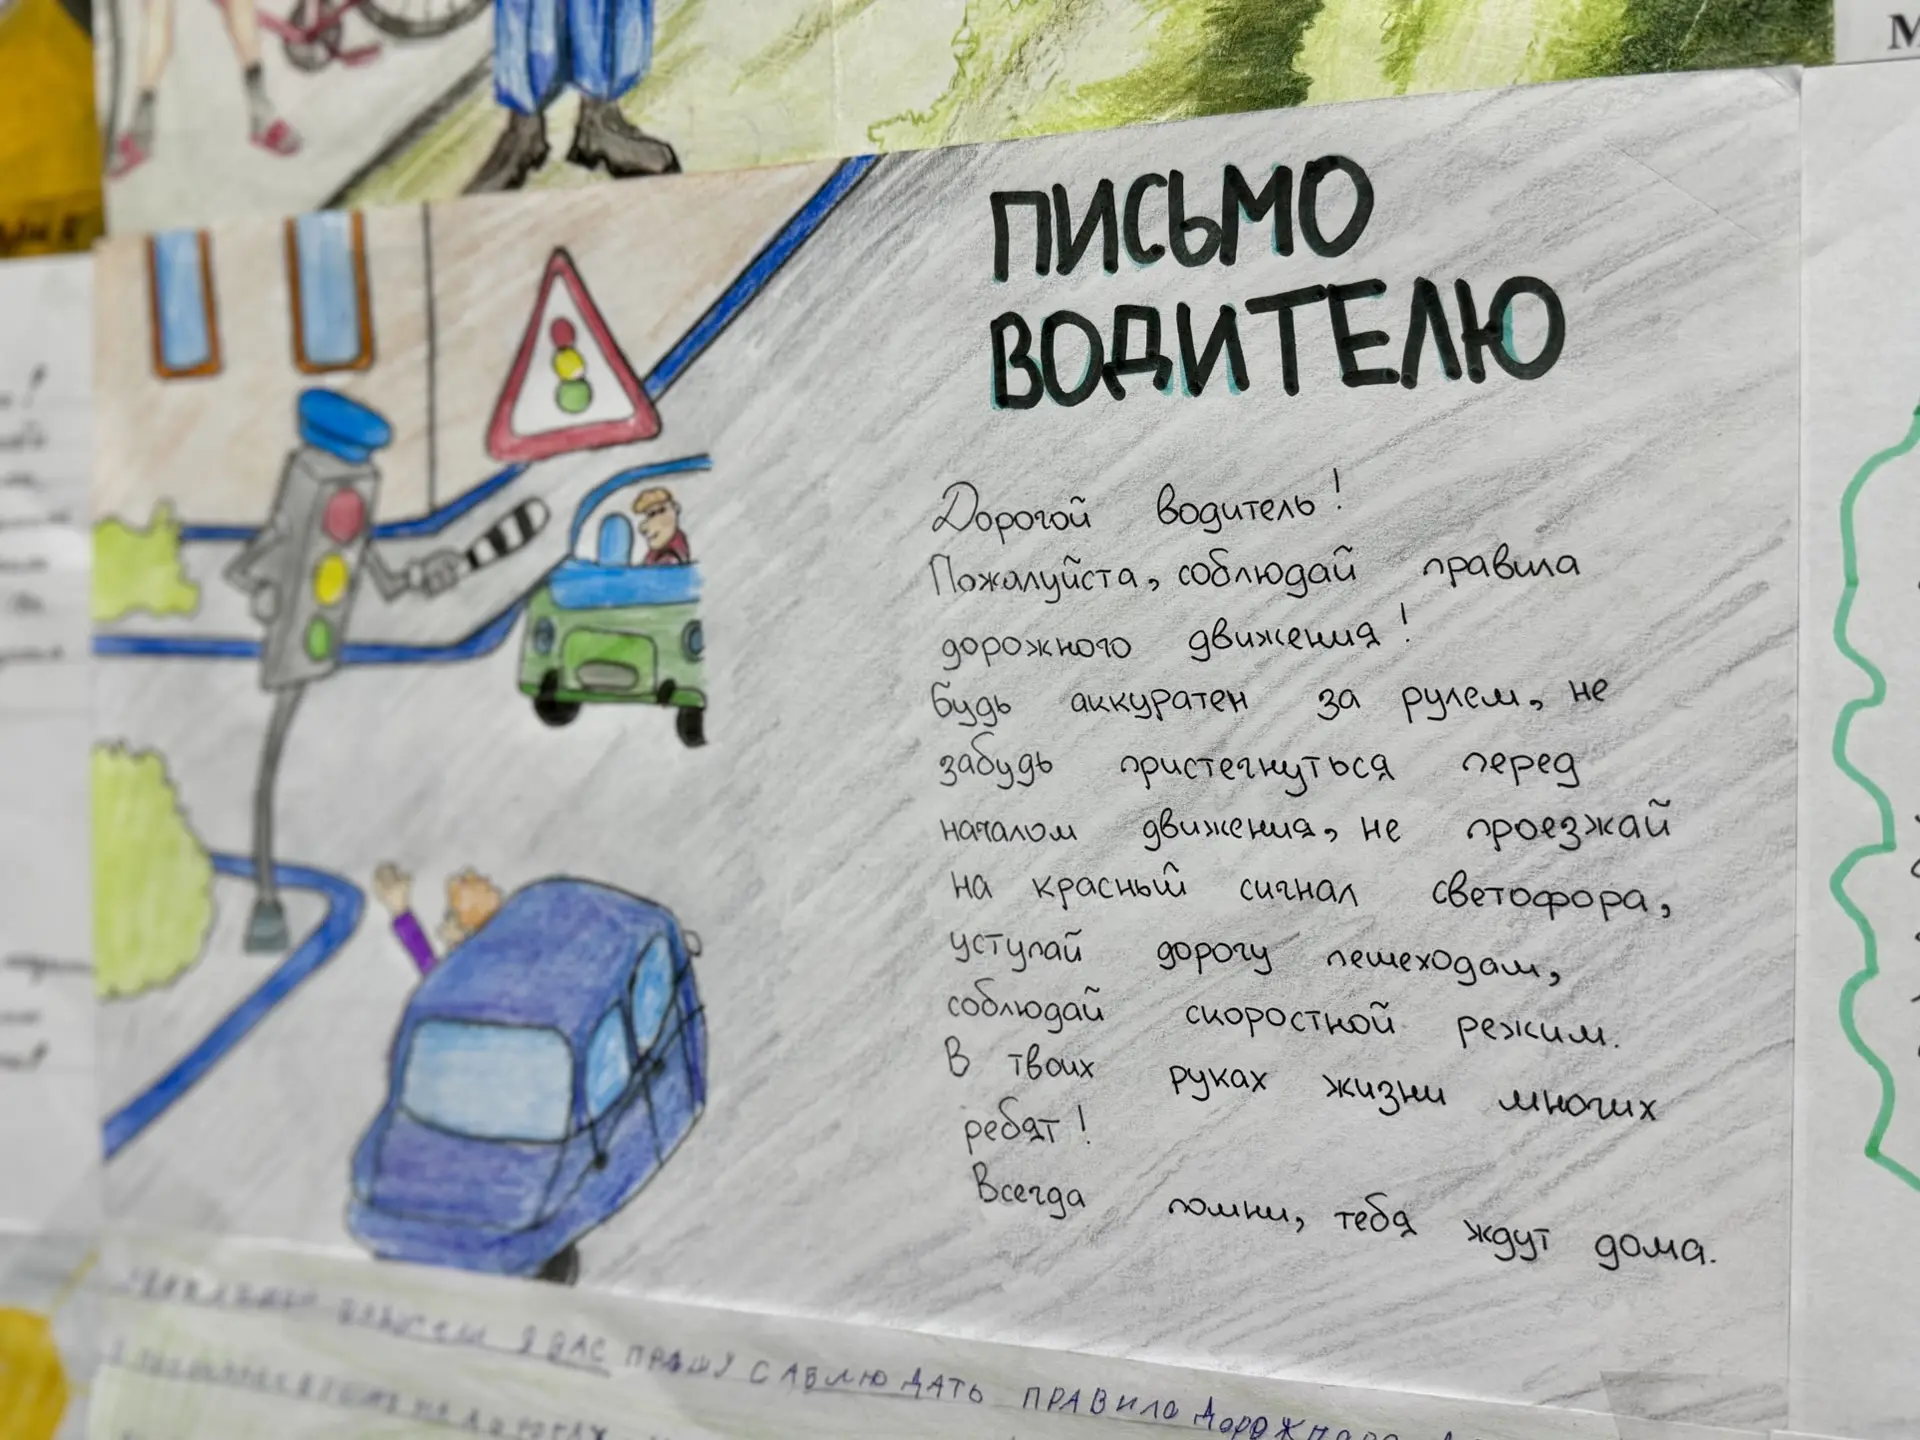 М
ПИСЬМО
ВОДИТЕЛЮ
Дорогой водитель!
Пожалуйста, соблюдай правила
дорожного движения!
Будь аккуратен за рулем, не
забудь пристегнуться перед
началом движения, не проезжай
на красный сигнал светофора,
уступай дорогу пешеходам,
соблюдай скоростной режим.
В твоих руках жизни многих
ребят!
Всегда помни, тебя ждут дома.
Я ВАС ПРАШУ САБЛЮДАТЬ ПРАВИЛА